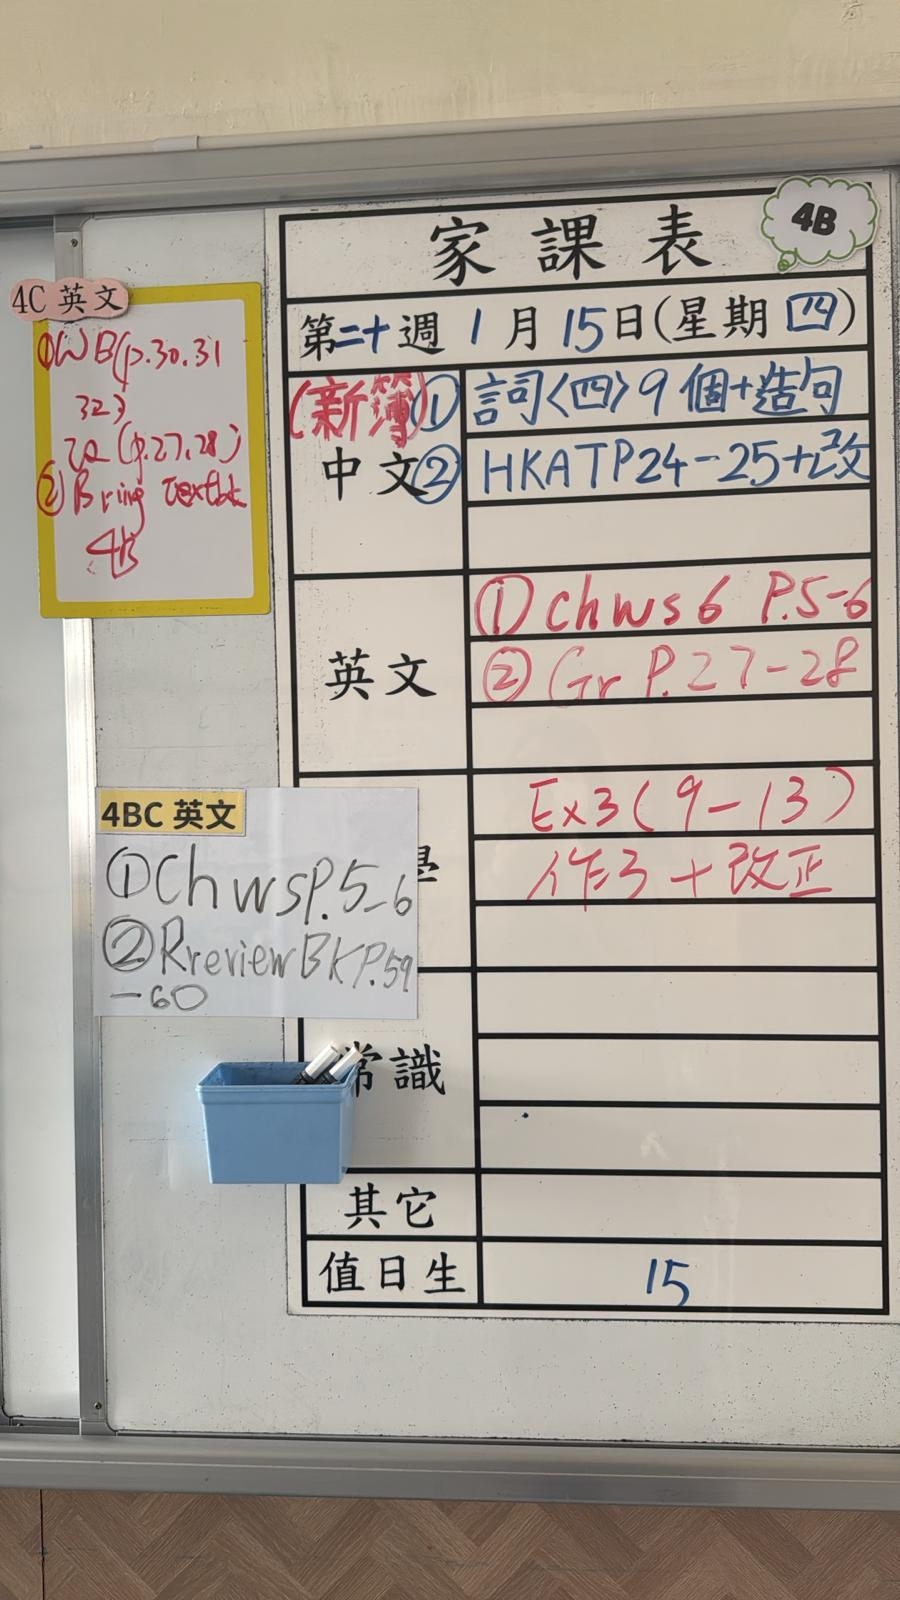 家課表
4B
第二十週 1月15日(星期四)
(新簿)① 詞〈四〉9個+造句
中文② HKAT P24-25+改
英文
① Chws6 P.5-6
② Gr P.27-28
Ex3(9-13)
學
作3+改正
常識
其它
值日生 15
4C 英文
①WB(p.30.31
32)
(p.27.28)
②Bring textbk
4B
4BC 英文
①Ch wsP.5-6
②RreviewBKP.59
-60